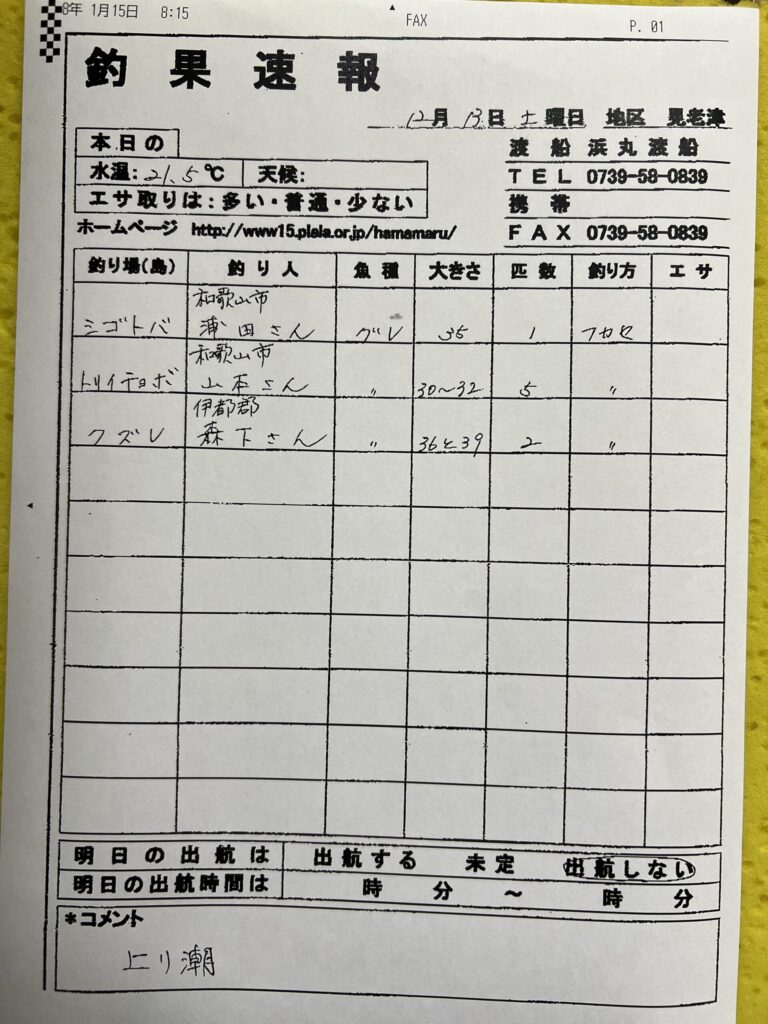 8年 1月15日 8:15 FAX P. 01
釣果速報
12月 13日 土曜日 地区 見老津
本日の
水温: 21.5℃ 天候:
エサ取りは:多い・普通・少ない
渡船 浜丸渡船
TEL 0739-58-0839
携帯
FAX 0739-58-0839
ホームページ http://www15.plala.or.jp/hamamaru/
釣り場(島) 釣り人 魚種 大きさ 匹数 釣り方 エサ
和歌山市
シゴトバ 浦田さん グレ 35 1 フカセ
和歌山市
トリイチョボ 山本さん 〃 30〜32 5 〃
伊都郡
クズレ 森下さん 〃 36と39 2 〃
明日の出航は 出航する 未定 出航しない
明日の出航時間は 時 分 〜 時 分
*コメント
上り潮